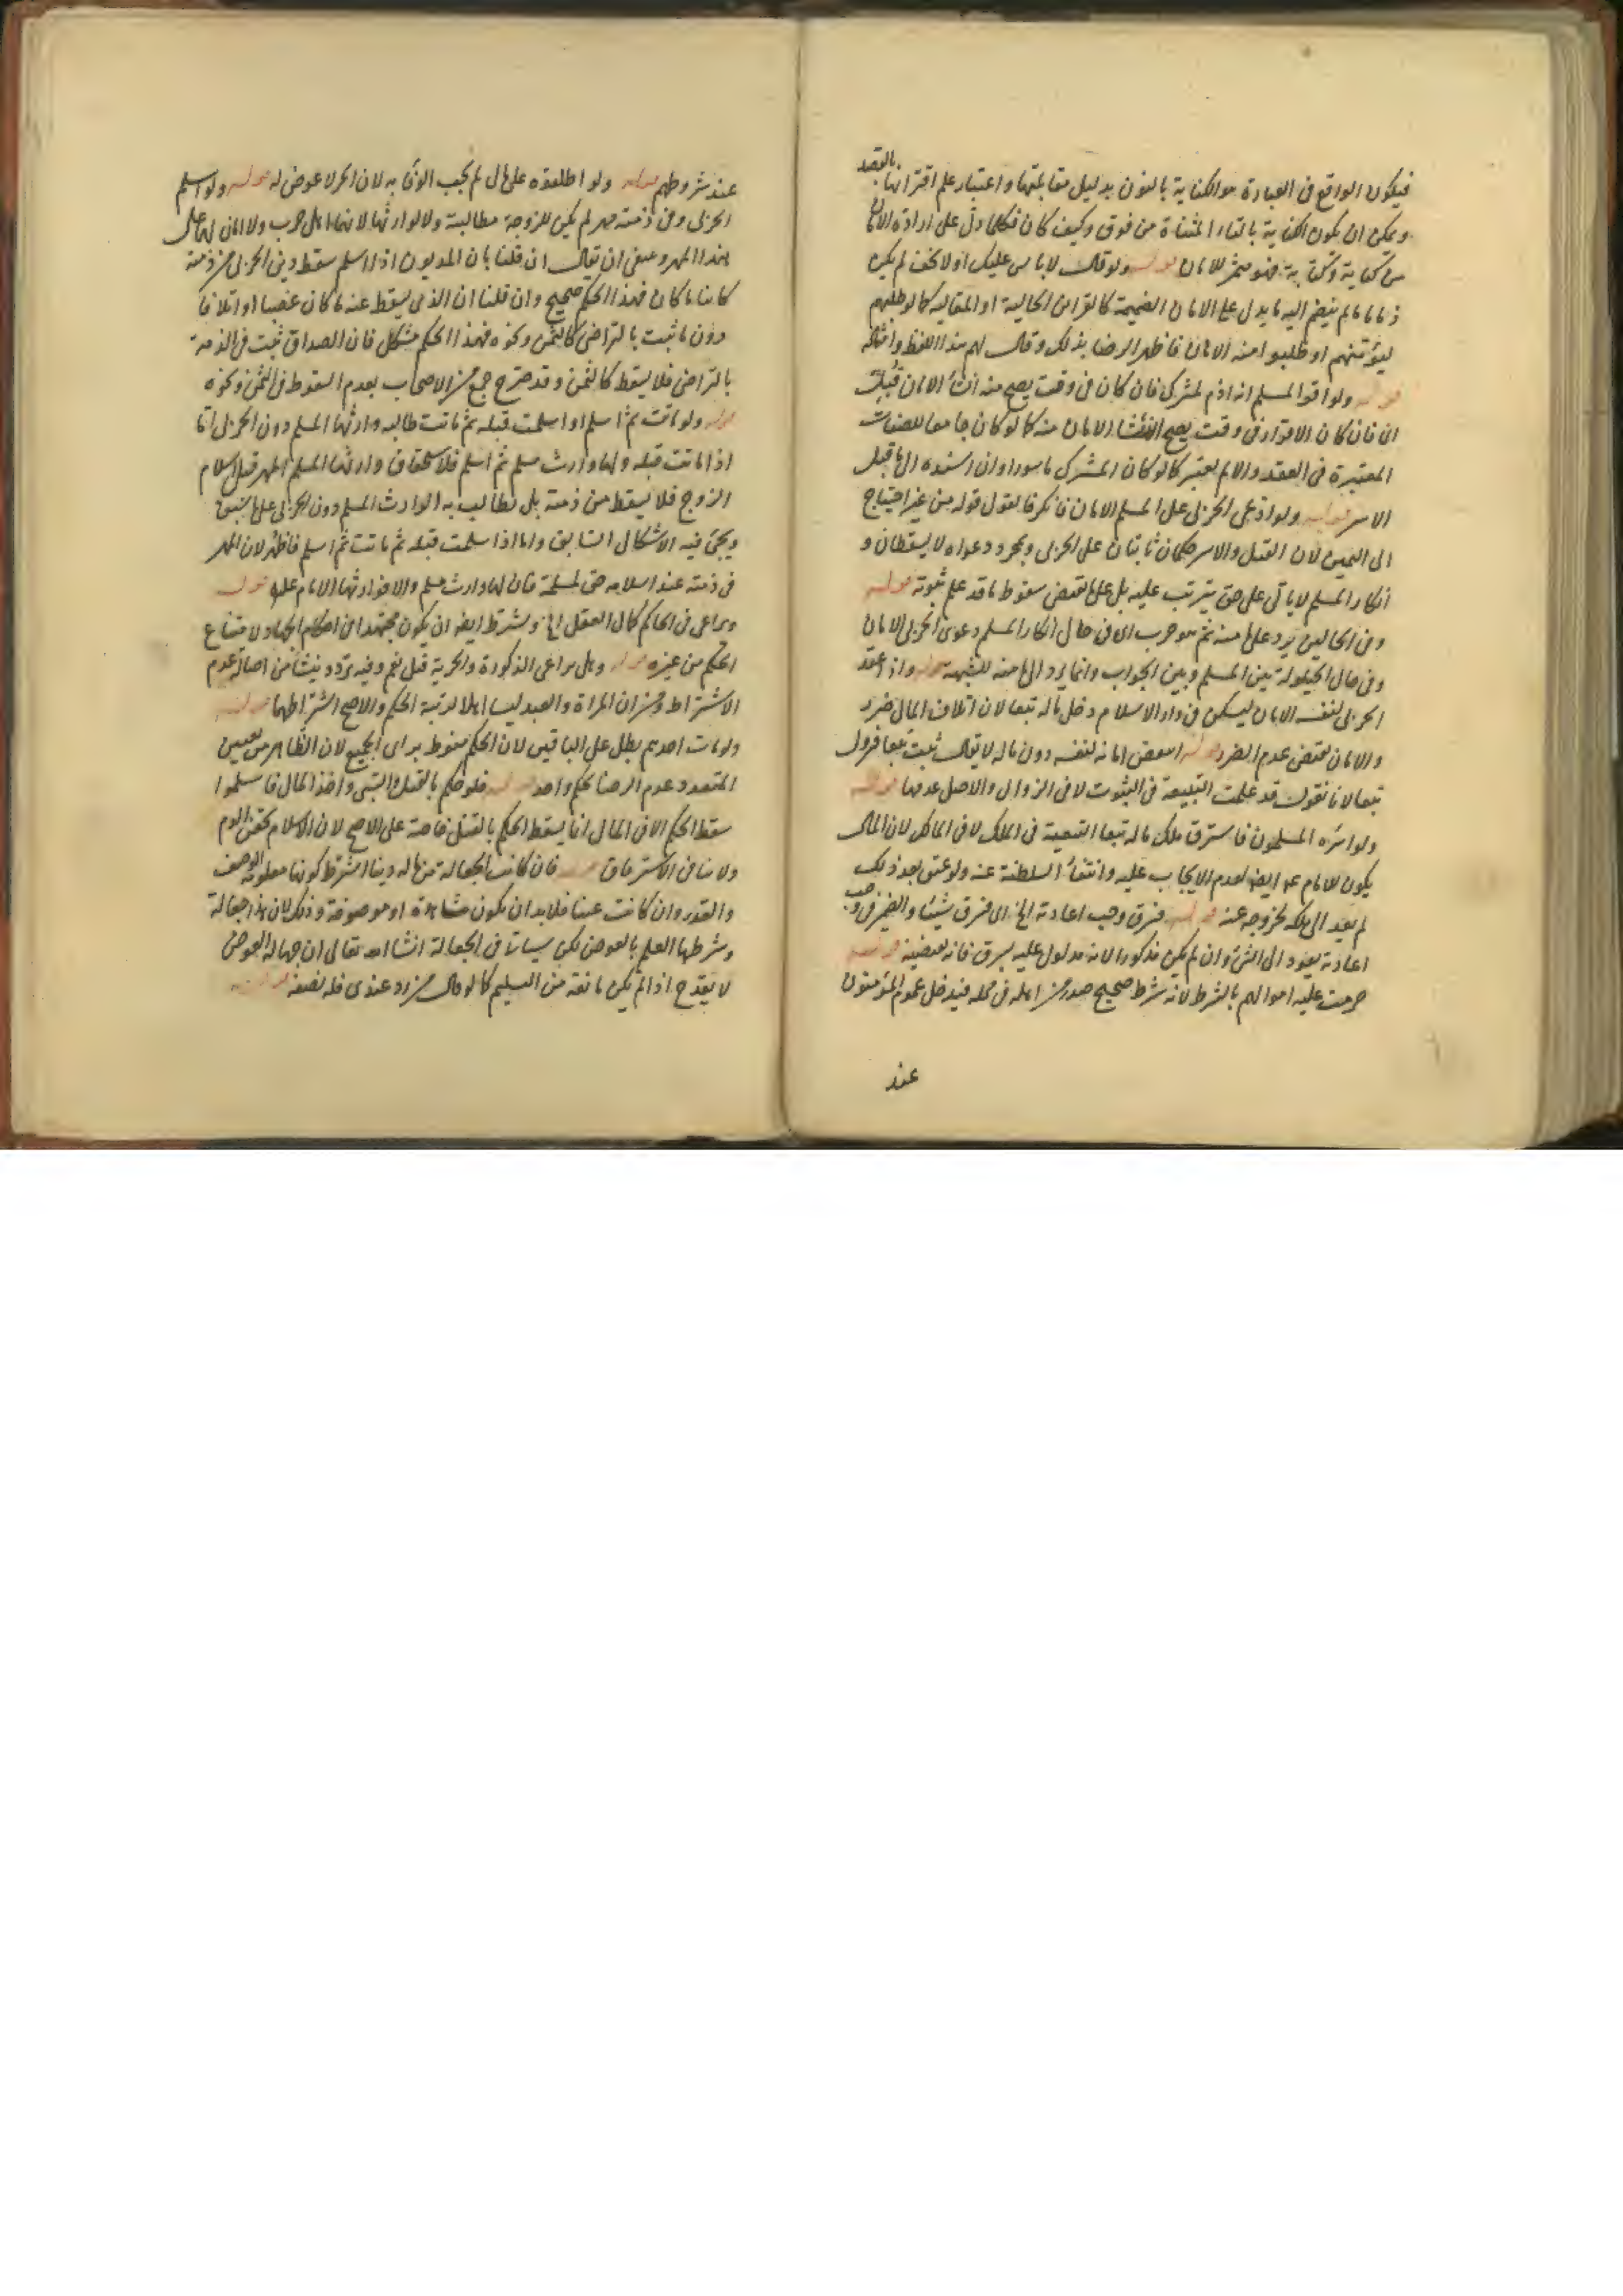 فيكون الواقع في العبارة هو الكناية بالنون بدليل مقابلتها واعتبار علم اقترانها بالقصد
ويمكن ان يكون الكتابة بالتاء المثناة من فوق وكيف كان فكلما دل على ارادة الامان
من كناية وكتابة فهو مثمر للامان قوله ولو قال لا باس عليك او لا تخف لم يكن
ذماما ما لم ينضم اليه ما يدل على الامان الضميمة كالقراين الحالية او المقالية كما لو طلبهم
ليؤمنهم او طلبوا منه الامان فاظهر الرضا بذلك وقال لهم هذا اللفظ وامثاله
قوله ولو اقر المسلم انه اذم لمشرك فان كان في وقت يصح منه انشاء الامان قبلت
اي فان كان الاقرار في وقت يصح انشاء الامان منه كما لو كان جامعا للصفات
المعتبرة في العقد والا لم يعتبر كما لو كان المشرك ماسورا وان اسنده الى ما قبل
الاسر قوله ولو ادعى الحربي على المسلم الامان فانكر فالقول قوله من غير احتياج
الى اليمين لان القتل والاسر حكمان ثابتان على الحربي وبمجرد دعواه لا يسقطان و
انكار المسلم لا ياتي على حق يترتب عليه بل على ما يقتضي سقوط ما قد علم ثبوته قوله
وفي الحالين يرد على مامنه ثم هو حرب اي في حال انكار المسلم دعوى الحربي الامان
وفي حال الحيلولة بين المسلم وبين الجواب وانما يرد الى مامنه للشبهة قوله واذا عقد
الحربي لنفسه الامان ليسكن في دار الاسلام دخل ماله تبعا لان اتلاف المال ضرر
والامان يقتضي عدم الضرر قوله انتقض امانه لنفسه دون ماله لا يقال ثبت تبعا فيزول
تبعا لانا نقول قد علمت التبعية في الثبوت لا في الزوال والاصل عدمها قوله
ولو اسره المسلمون فاسترق ملك ماله تبعا التبعية في الملك لا في المالك لان المال
يكون للامام عم ايضا لعدم الايجاب عليه وانتفاء السلطنة عنه ولو عتق بعد ذلك
لم يعد الى ملكه لخروجه عنه قوله فسرق وجب اعادته الخ اي فسرق شيئا والضمير في وجب
اعادته يعود الى الشئ وان لم يكن مذكورا لانه مدلول عليه بسرق فانه يقتضيه قوله
حرمت عليه اموالهم بالشرط لانه شرط صحيح صدر من اهله في محله فيدخل عموم المؤمنون
عند
عند شروطهم قوله ولو اطلقوه على مال لم يجب الوفاء به لان الحر لا عوض له قوله ولو اسلم
الحربي وفي ذمته مهر لم يكن للزوجة مطالبة ولا لوارثها لانهما اهل حرب ولا امان لهما على
هذا المهر وينبغي ان يقال ان قلنا بان المديون اذا اسلم سقط دين الحربي من ذمته
كاينا ما كان فهذا الحكم صحيح وان قلنا ان الذي يسقط عنه ما كان غصبا او اتلافا
دون ما ثبت بالتراضي كالثمن ونحوه فهذا الحكم مشكل فان الصداق ثبت في الذمة
بالتراضي فلا يسقط كالثمن وقد صرح جمع من الاصحاب بعدم السقوط في الثمن ونحوه
قوله ولو ماتت ثم اسلم او اسلمت قبله ثم ماتت طالبه وارثها المسلم دون الحربي اما
اذا ماتت قبله ولها وارث مسلم ثم اسلم فلاستحقاق وارثها المسلم المهر قبل اسلام
الزوج فلا يسقط من ذمته بل يطالب به الوارث المسلم دون الحربي على ما سبق
ويجئ فيه الاشكال السابق واما اذا اسلمت قبله ثم ماتت ثم اسلم فاظهر لان المهر
في ذمته عند اسلامه حق لمسلمة فان لها وارث مسلم والا فوارثها الامام علم قوله
ويراعى في الحاكم كمال العقل الخ ويشترط ايضا ان يكون مجتهدا في احكام الجهاد لامتناع
الحكم من غيره قوله وهل يراعى الذكورة والحرية قيل نعم وفيه تردد ينشأ من اصالة عدم
الاشتراط ومن ان المراة والعبد ليسا اهلا لرتبة الحكم والاصح اشتراطهما قوله
ولو مات احدهم بطل على الباقين لان الحكم منوط براى الجميع لان الظاهر من تعيين
المتعدد عدم الرضا بحكم واحد قوله فلو حكم بالقتل والسبي واخذ المال فاسلموا
سقط الحكم الا في المال انما يسقط الحكم بالقتل خاصة على الاصح لان الاسلام يحقن الدم
ولا ينافي الاسترقاق قوله فان كانت الجعالة من ماله دينا اشترط كونها معلومة الوصف
والقدر وان كانت عينا فلابد ان يكون مشاهدة او موصوفة وذلك لان هذا جعالة
وشرطها العلم بالعوض لكن سياتي في الجعالة انشا الله تعالى ان جهالة العوض
لا يقدح اذا لم تكن مانعة من التسليم كما لو قال من رد عبدي فله نصفه قوله